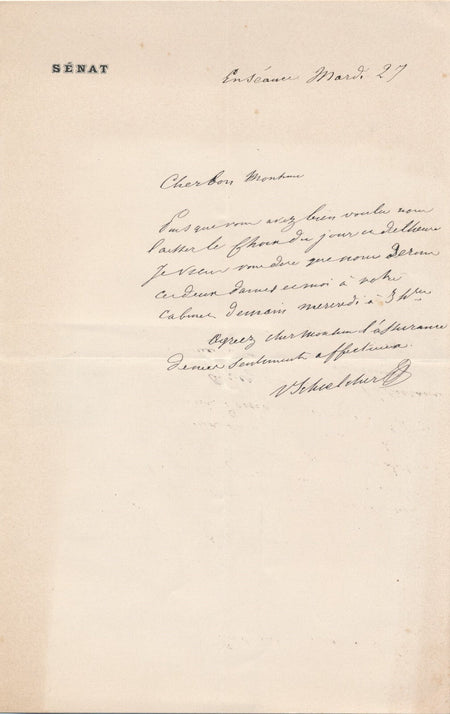 SÉNAT
En séance Mardi 27
Cher bon Monsieur
Puisque vous avez bien voulu nous
laisser le choix du jour et de l'heure
je veux vous dire que nous serons
ces deux dames et moi à votre
cabinet demain mercredi à 3 hres
Agréez cher Monsieur l'assurance
de mes sentiments affectueux
V Schoelcher